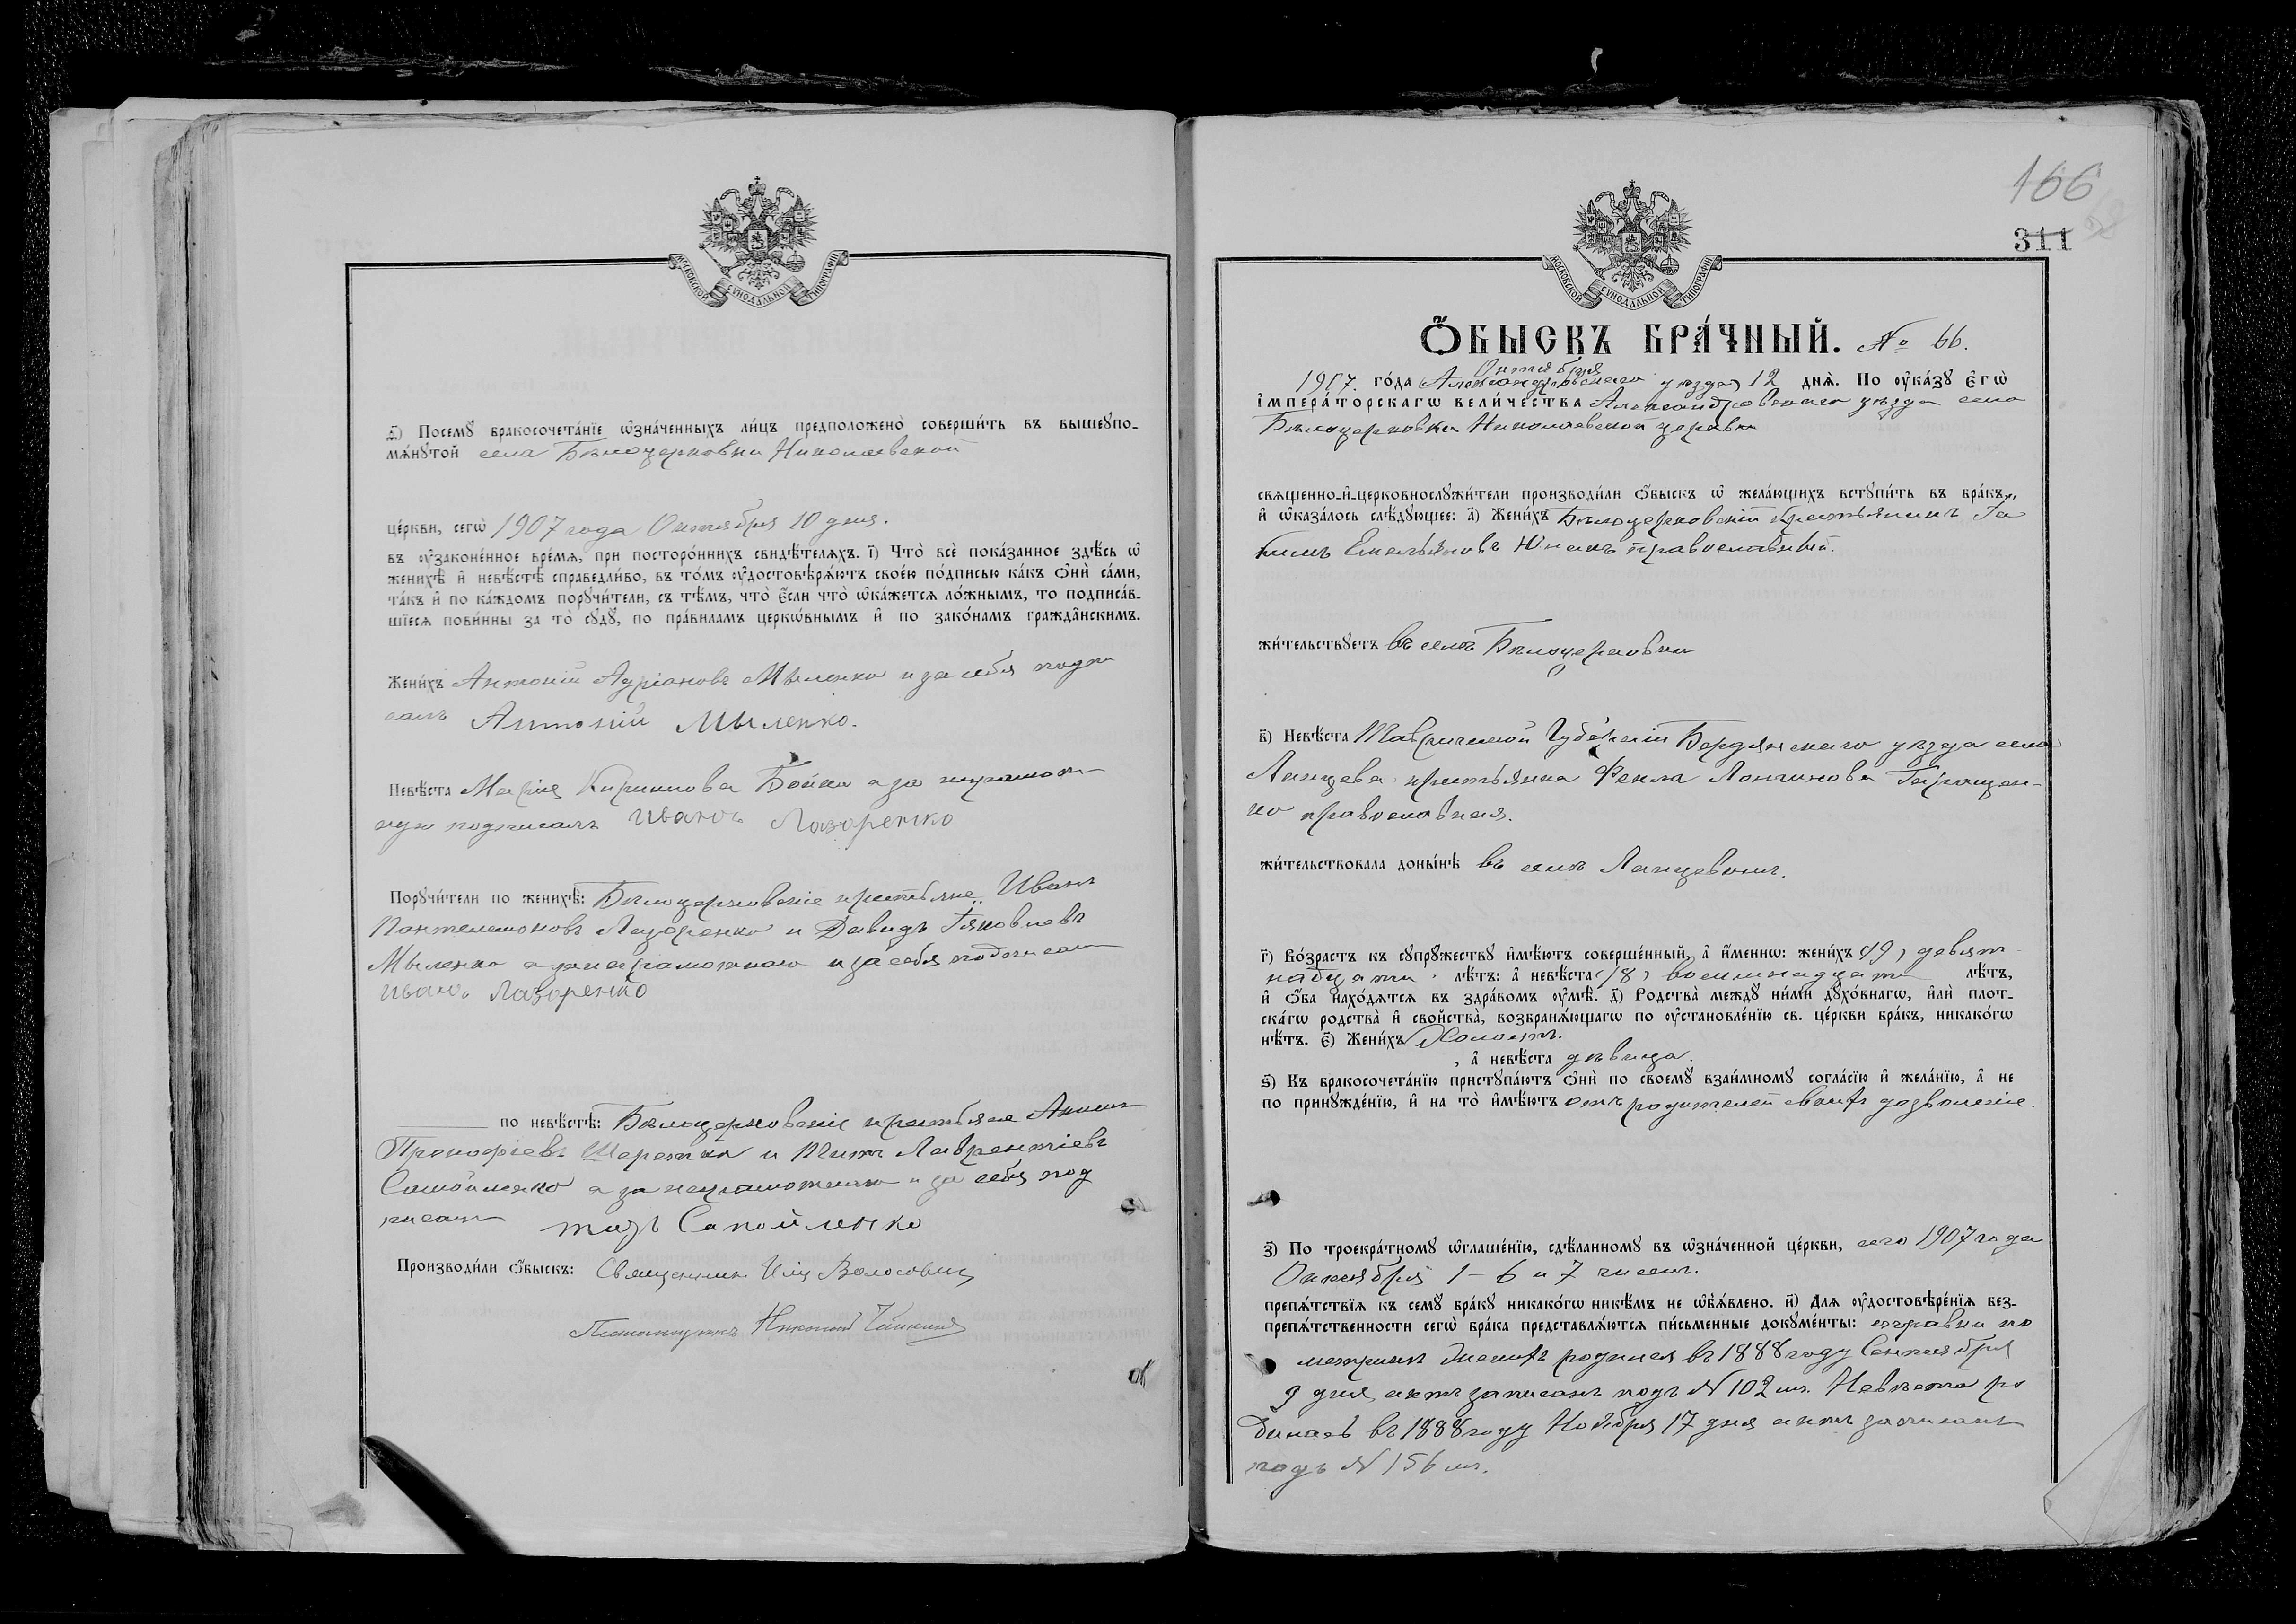 МОСКОВСКОЙ СѴНОДАЛЬНОЙ ТИПОГРАФІИ
ѳ҃) Посемꙋ̀ бракосочета́нїе ѡ҆зна́ченныхъ ли́цъ предположено̀ соверши́ть въ вышеꙋпо-
мѧ́нꙋтой села Бѣлоцерковки Николаевской
це́ркви, сегѡ̀ 1907 года Октября 10 дня.
въ ᲂу҆законе́нное вре́мѧ, при посторо́ннихъ свидѣ́телѧхъ. і҃) Что̀ всѐ пока́занное здѣ́сь ѡ҆
женихѣ̀ и҆ невѣ́стѣ справедли́во, въ то́мъ ᲂу҆достовѣрѧ́ютъ свое́ю по́дписью ка́къ ѻ҆нѝ са́ми,
та́къ и҆ по ка́ждомъ порꙋчи́тели, съ тѣ́мъ, что̀ є҆́сли что̀ ѡ҆ка́жетсѧ ло́жнымъ, то подписа́в-
шїесѧ пови́нны за то̀ сꙋдꙋ̀, по пра́виламъ церкѡ́внымъ и҆ по зако́намъ гражда̂нскимъ.
Жени́хъ Антоній Адріановъ Мыленко и за себя подпи
салъ Антоній Мыленко.
Невѣ́ста Марія Кириллова Бойко а за неграмот-
ную подписалъ Иванъ Лазоренко
Порꙋчи́тели по женихѣ̀: Бѣлоцерковскіе крестьяне: Иванъ
Пантелемоновъ Лазоренко и Давидъ Яковлевъ
Мыленко а за неграмотнаго и за себя подписалъ
Иванъ Лазоренко
по невѣ́стѣ: Бѣлоцерковскіе крестьяне
Прокофіевъ и Титъ Лаврентіевъ
Самойленко а за неграмотнаго и за себя под
писалъ Самойленко
Производи́ли ѻ҆́быскъ: Священникъ Волосовичъ
Псаломщикъ Николай
166
311
МОСКОВСКОЙ СѴНОДАЛЬНОЙ ТИПОГРАФІИ
Ѻ҆́БЫСКЪ БРА́ЧНЫЙ. № 66.
Октября
1907. го́да Александровскаго уѣзда 12 днѧ̀. По ᲂу҆ка́зꙋ є҆гѡ̀
і҆мпера́торскагѡ вели́чества Александровскаго уѣзда села
Бѣлоцерковки Николаевской церкви
свѧще́нно-и҆-церковнослꙋжи́тели производи́ли ѻ҆́быскъ ѡ҆ жела́ющихъ встꙋпи́ть въ бра́къ,
и҆ ѡ҆каза́лось слѣ́дꙋющее: а҃) Жени́хъ Бѣлоцерковскій крестьянинъ Іа
кимъ Емельяновъ Юнакъ православный.
жи́тельствꙋетъ въ селѣ Бѣлоцерковки
в҃) Невѣ́ста Таврической Губерніи Бердянскаго уѣзда села
Ланцева крестьянка Фекла Геращен-
ко православная.
жи́тельствовала доны́нѣ въ селѣ
г҃) Во́зрастъ къ сꙋпрꙋ́жествꙋ и҆мѣ́ютъ соверше́нный, а҆ и҆́меннѡ: жени́хъ (19) девят
надцати лѣ́тъ: а҆ невѣ́ста (18) восемнадцати лѣ́тъ,
и҆ ѻ҆́ба нахо́дѧтсѧ въ здра́вомъ ᲂу҆мѣ̀. д҃) Родства̀ междꙋ̀ ни́ми дꙋхо́внагѡ, и҆лѝ плот-
ска́гѡ родства̀ и҆ сво́йства̀, возбранѧ́ющагѡ по ᲂу҆становле́нїю св. це́ркви бра́къ, никако́гѡ
нѣ́тъ. є҃) Жени́хъ Холостъ.
, а҆ невѣ́ста дѣвица.
ѕ҃) Къ бракосочета́нїю пристꙋпа́ютъ ѻ҆нѝ по своемꙋ̀ взаи́мномꙋ согла́сїю и҆ жела́нїю, а҆ не
по принꙋжде́нїю, и҆ на то̀ и҆мѣ́ютъ отъ родителей своихъ дозволеніе
з҃) По троекра́тномꙋ ѡ҆глаше́нїю, сдѣ́ланномꙋ въ ѡ҆зна́ченной це́ркви, сего 1907 года
Октября 1-6 и 7 чиселъ.
препѧ́тствїѧ къ семꙋ̀ бра́кꙋ никако́гѡ никѣ́мъ не ѡ҆б̾ѧ́влено. и҃) Длѧ ᲂу҆достовѣре́нїѧ без-
препѧ́тственности сегѡ̀ бра́ка представлѧ́ютсѧ пи́сьменные докꙋме́нты: справки по
метрикѣ Женихъ родился въ 1888 году Сентября
9 дня, актъ записанъ подъ № 102 м. Невѣста ро
дилась въ 1888 году Ноября 17 дня актъ записанъ
подъ № 156 м.